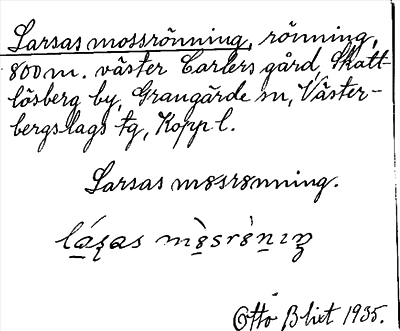 Larsas mossrönning, rönning,
800 m. väster Carlers gård, Skatt-
lösberg by, Grangärde sn, Väster-
bergslags tg, Kopp l.
Larsas
Otto Blixt 1935.